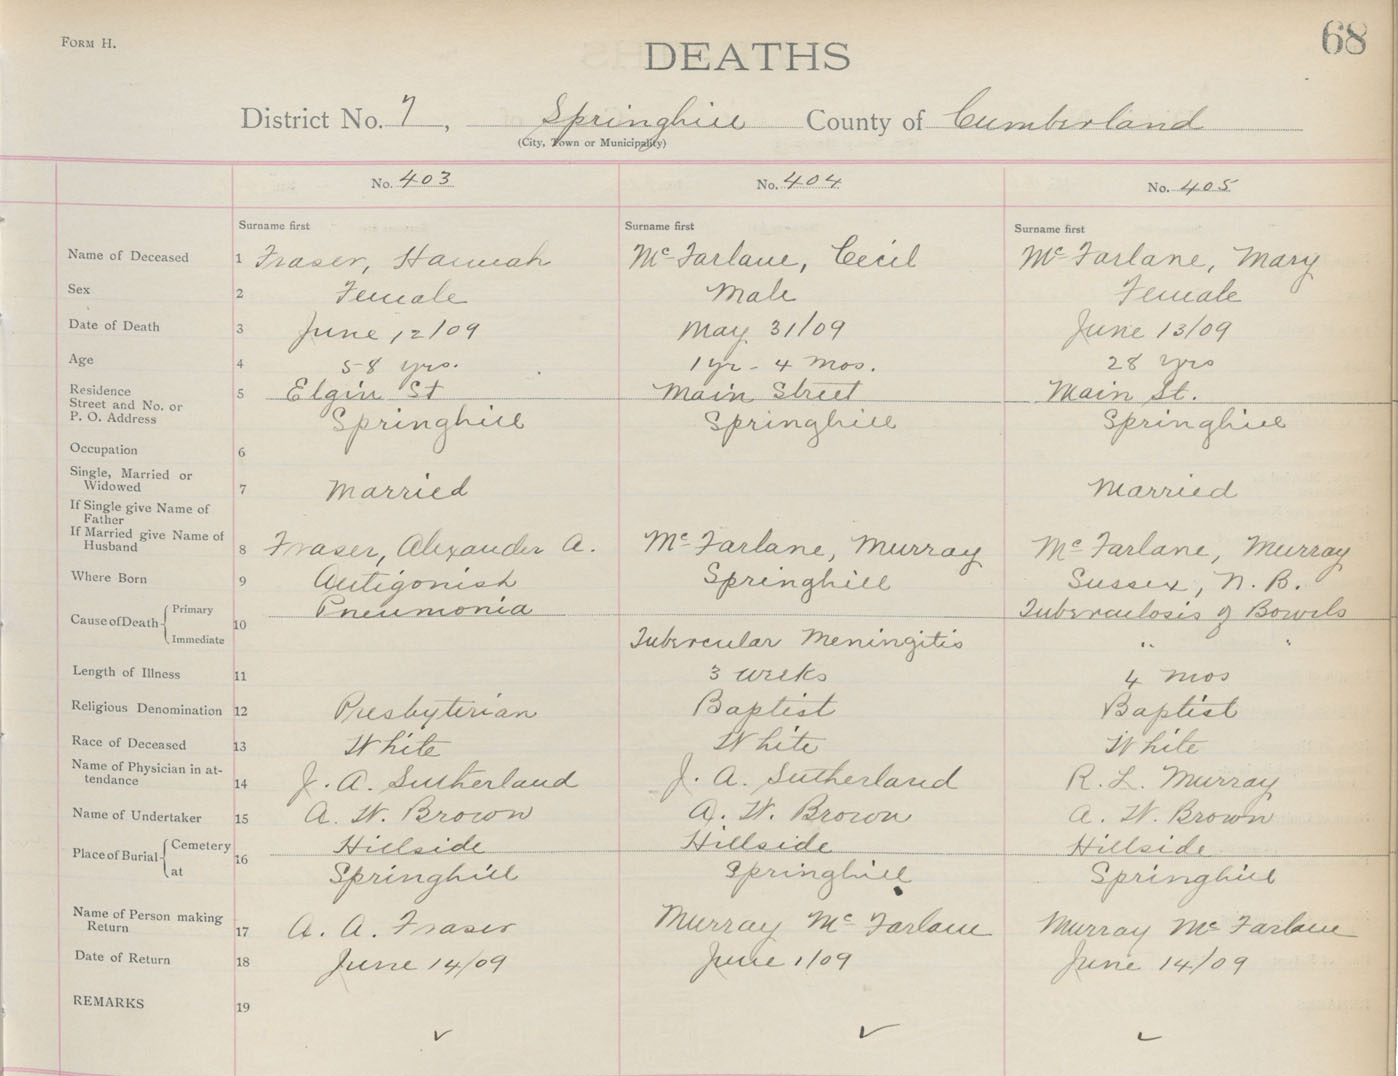 FORM H.
68
DEATHS
District No. 7, Springhill County of Cumberland
(City, Town or Municipality)
No. 403 No. 404 No. 405
Surname first Surname first Surname first
Name of Deceased 1 Fraser, Hannah McFarlane, Cecil McFarlane, Mary
Sex 2 Female Male Female
Date of Death 3 June 12/09 May 31/09 June 13/09
Age 4 58 yrs. 1 yr - 4 mos. 28 yrs
Residence 5 Elgin St Main Street Main St.
Street and No. or
P. O. Address Springhill Springhill Springhill
Occupation 6
Single, Married or
Widowed 7 Married Married
If Single give Name of
Father
If Married give Name of
Husband 8 Fraser, Alexander A. McFarlane, Murray McFarlane, Murray
Where Born 9 Antigonish Springhill Sussex, N. B.
Cause of Death Primary 10 Pneumonia Tuberculosis of Bowels
Immediate Tubercular Meningitis " "
Length of Illness 11 3 weeks 4 mos
Religious Denomination 12 Presbyterian Baptist Baptist
Race of Deceased 13 White White White
Name of Physician in at-
tendance 14 J. A. Sutherland J. A. Sutherland R. L. Murray
Name of Undertaker 15 A. W. Brown A. W. Brown A. W. Brown
Place of Burial Cemetery 16 Hillside Hillside Hillside
at Springhill Springhill Springhill
Name of Person making
Return 17 A. A. Fraser Murray McFarlane Murray McFarlane
Date of Return 18 June 14/09 June 1/09 June 14/09
REMARKS 19